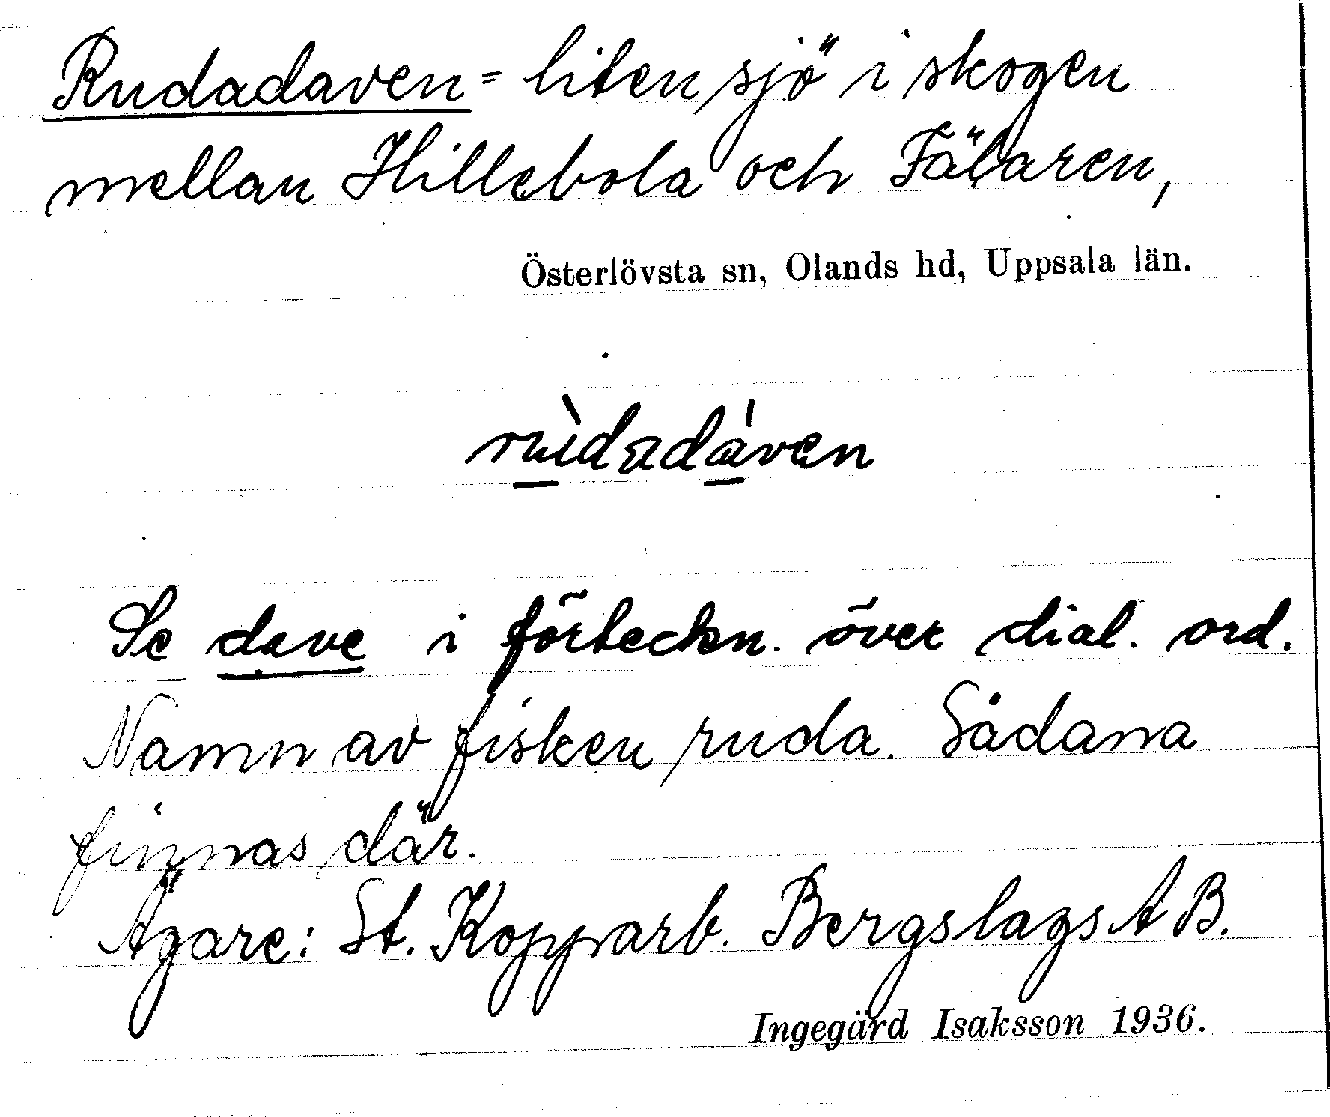 Rudadaven = liten sjö i skogen
mellan Hillebola och Fälaren,
Österlövsta sn, Olands hd, Uppsala län.
rùdadáven
Se dave i förteckn. över dial. ord.
Namn av fisken ruda. Sådana
finnas där.
Ägare: St. Kopparb. Bergslags AB.
Ingegärd Isaksson 1936.